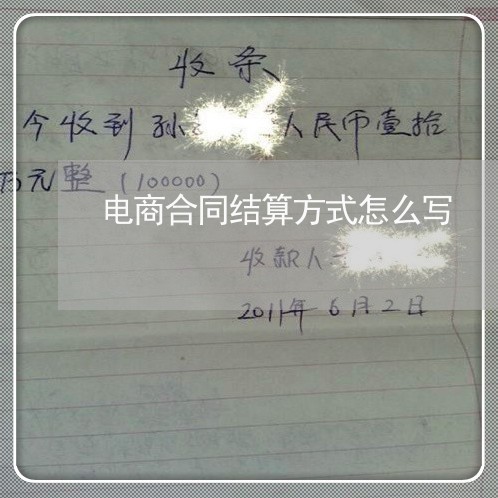 收条
今收到 孙 人民币壹拾
万元整（100000）
电商合同结算方式怎么写
收款人
2011年6月2日